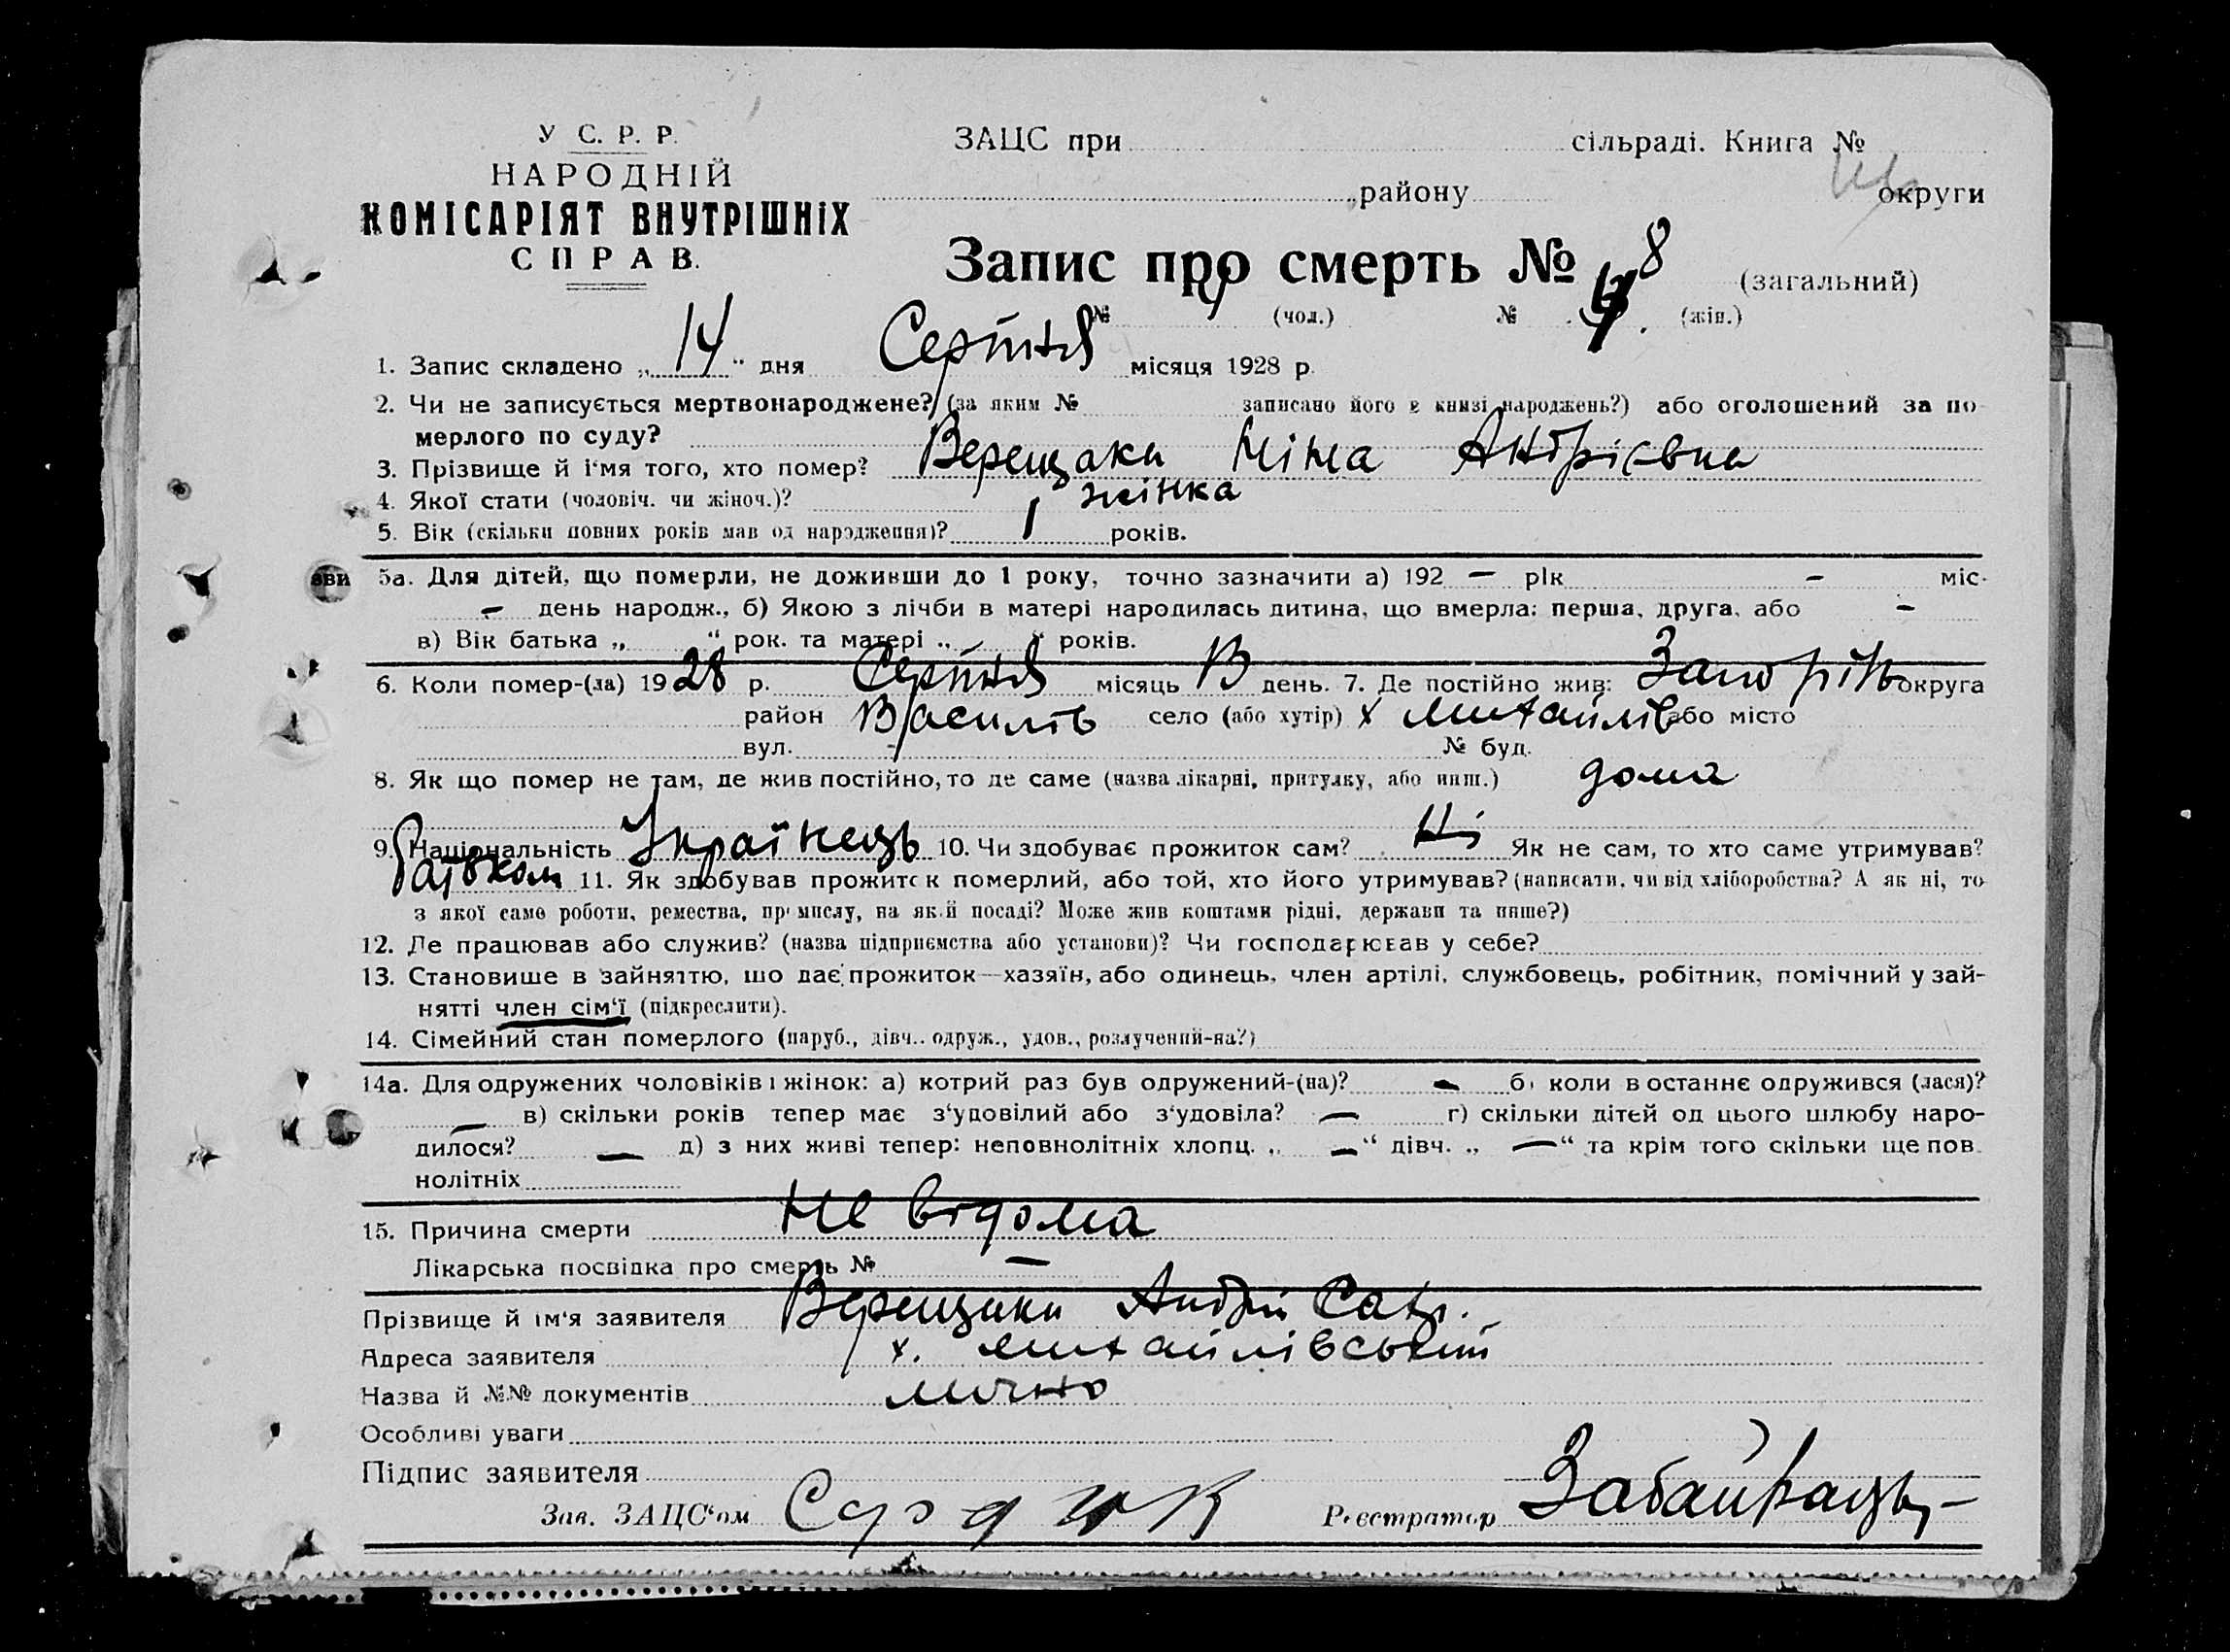 У С. Р. Р.
НАРОДНІЙ
КОМІСАРІЯТ ВНУТРІШНІХ
СПРАВ.
ЗАЦС при сільраді. Книга №
району округи
Запис про смерть № 8 (загальний)
№ (чол.) № (жін.)
1. Запис складено „14“ дня Серпня місяця 1928 р.
2. Чи не записується мертвонароджене? (за яким № записано його в книзі народжень?) або оголошений за по
мерлого по суду?
3. Прізвище й і‘мя того, хто помер? Верещака Ніна Андрієвна
4. Якої стати (чоловіч. чи жіноч.)? жінка
5. Вік (скільки повних років мав од народження)? 1 років.
5а. Для дітей, що померли, не доживши до 1 року, точно зазначити а) 192 — рік - міс-
- день народж., б) Якою з лічби в матері народилась дитина, що вмерла: перша, друга, або -
в) Вік батька „ “ рок. та матері „ “ років.
6. Коли помер-(ла) 1928 р. Серпня місяць 13 день. 7. Де постійно жив: округа
район Василів село (або хутір) х Михайлів або місто
вул. - № буд.
8. Як що помер не там, де жив постійно, то де саме (назва лікарні, притулку, або инш.) дома
9. Національність Українець 10. Чи здобуває прожиток сам? Ні Як не сам, то хто саме утримував?
батьком 11. Як здобував прожиток померлий, або той, хто його утримував? (написати, чи від хліборобства? А як ні, то
з якої саме роботи, ремества, промислу, на якій посаді? Може жив коштами рідні, держави та инше?)
12. Де працював або служив? (назва підприємства або установи)? Чи господарював у себе?
13. Становище в зайняттю, що дає прожиток—хазяїн, або одинець, член артілі, службовець, робітник, помічний у зай-
нятті член сім‘ї (підкреслити).
14. Сімейний стан померлого (паруб., дівч.. одруж., удов., розлучений-на?)
14а. Для одружених чоловіків і жінок: а) котрий раз був одружений-(на)? - б) коли в останнє одружився (лася)?
— в) скільки років тепер має з‘удовілий або з‘удовіла? — г) скільки дітей од цього шлюбу наро-
дилося? — д) з них живі тепер: неповнолітніх хлопц. „ —“ дівч. „ —“ та крім того скільки ще пов
нолітніх
15. Причина смерти Не відома
Лікарська посвідка про смерть № —
Прізвище й ім‘я заявителя Верещака Андрій
Адреса заявителя х. Михайлівський
Назва й №№ документів лично
Особливі уваги
Підпис заявителя
Зав. ЗАЦС‘ом Реєстратор